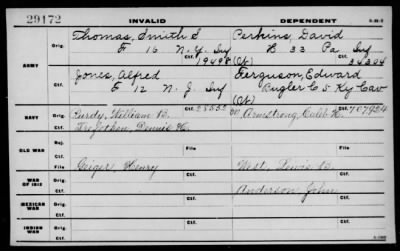 29172
INVALID
DEPENDENT
Thomas, Smith S
Perkins, David
ARMY
Orig.
F 16 N.Y. Inf
B 33 Pa Inf
Ctf.
19498
(Ct)
34304
Jones, Alfred
Ferguson, Edward
Orig.
F 12 N.J. Inf
Bugler C 5 Ky Cav
Ctf.
28552
(Ct)
NAVY
Orig.
Purdy, William B.
Armstrong, Caleb H.
Ctf.
707924
Ctf.
Trefethen, Dennis H.
OLD WAR
Rej.
File
File
Ctf.
Geiger, Henry
West, Lewis B.
WAR OF 1812
Orig.
Ctf.
Anderson, John
MEXICAN WAR
Orig.
Ctf.
INDIAN WAR
Orig.
Ctf.